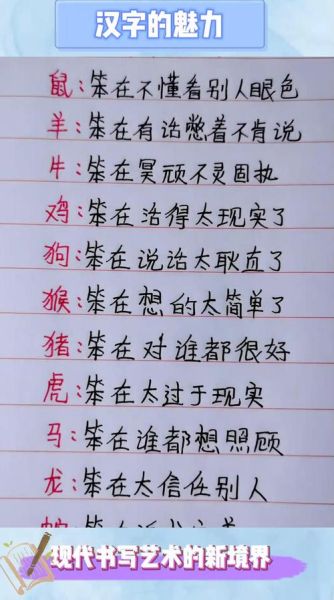 汉字的魅力
鼠:笨在不懂看别人眼色
羊:笨在有话憋着不肯说
牛:笨在冥顽不灵固执
鸡:笨在活得太现实了
狗:笨在说话太耿直了
猴:笨在想的太简单了
猪:笨在对谁都很好
虎:笨在太过于现实
马:笨在谁都想照顾
龙:笨在太信任别人
现代书写艺术的新境界